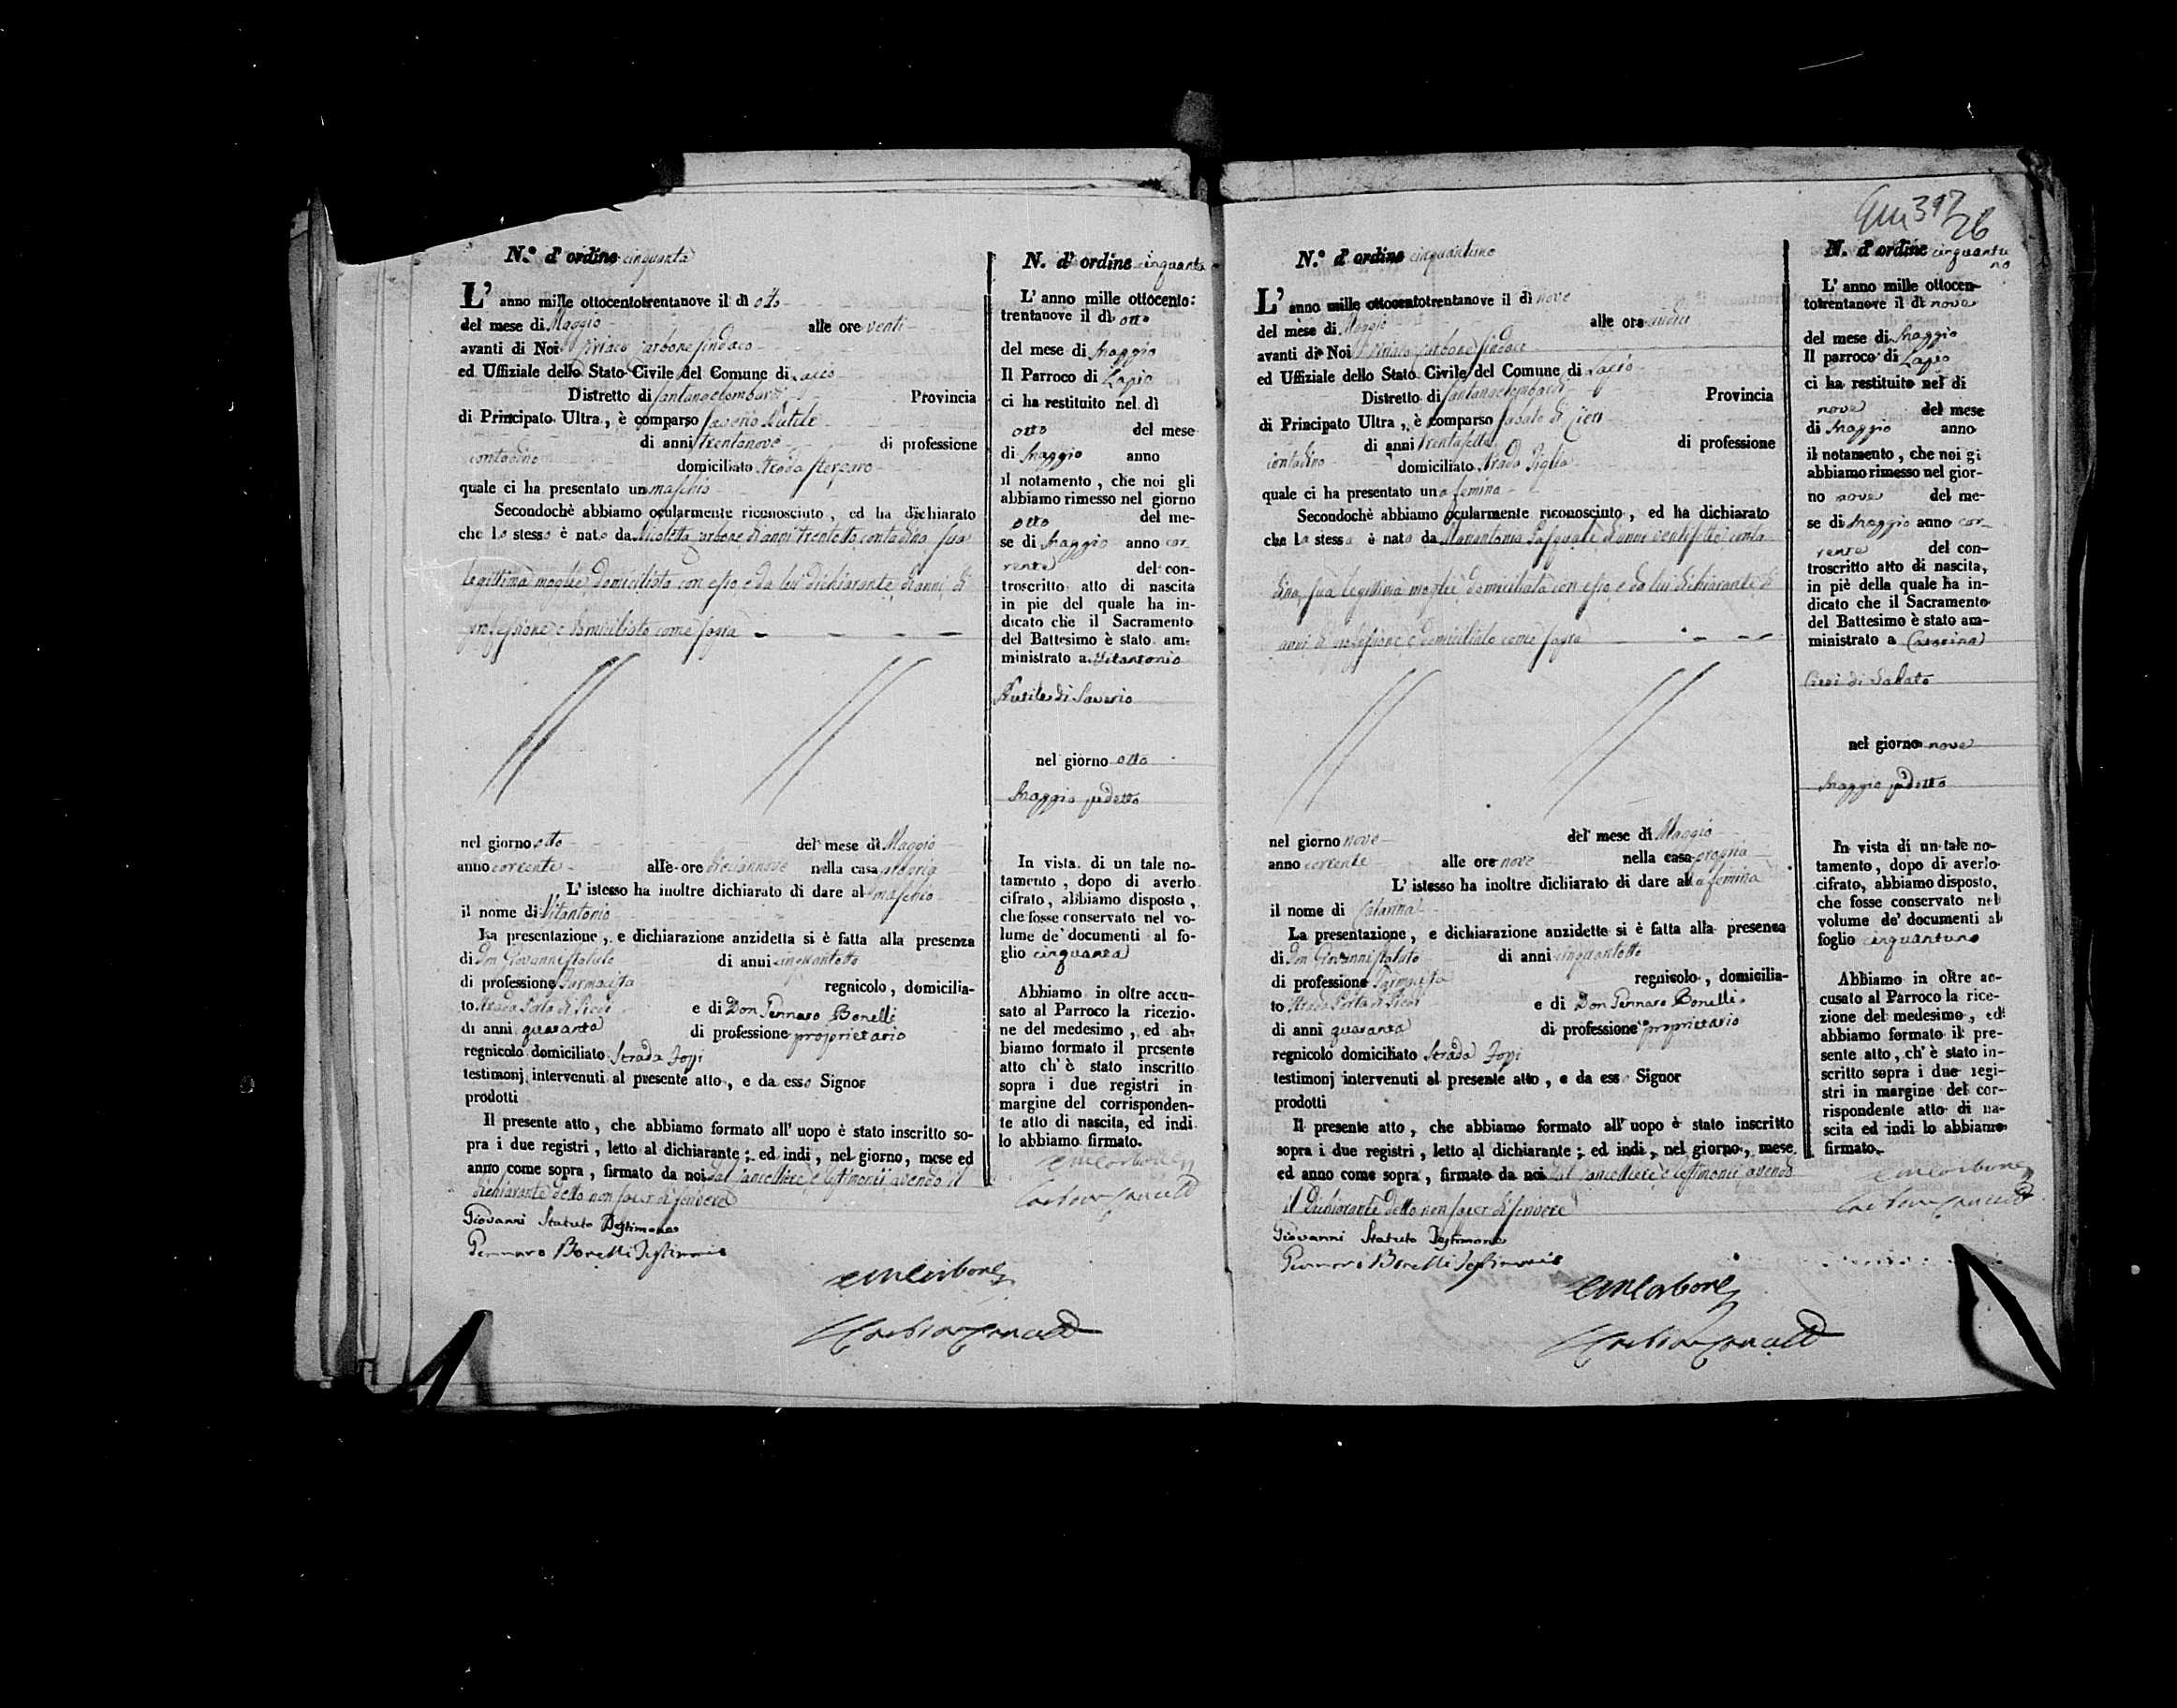 N.° d'ordine cinquanta
L' anno mille ottocentotrentanove il dì otto
del mese di Maggio alle ore venti
avanti di Noi Ciriaco Carbone Sindaco
ed Uffiziale dello Stato Civile del Comune di Lapio
Distretto di Santangelombardi Provincia
di Principato Ultra, è comparso Saverio
di anni trentanove di professione
contadino domiciliato strada
quale ci ha presentato un maschio
Secondochè abbiamo ocularmente riconosciuto, ed ha dichiarato
che lo stesso è nato da Nicoletta Carbone di anni trentotto contadina sua
legittima moglie domiciliata con esso e da lui dichiarante di anni di
professione e domiciliato come sopra
nel giorno otto del mese di Maggio
anno corrente alle ore diciannove nella casa propria
L' istesso ha inoltre dichiarato di dare al maschio
il nome di Vitantonio
La presentazione, e dichiarazione anzidetta si è fatta alla presenza
di Don Giovanni Statuto di anni cinquantotto
di professione Farmacista regnicolo, domicilia-
to strada Porta di e di Don Gennaro Bonelli
di anni quaranta di professione proprietario
regnicolo domiciliato Strada
testimonj intervenuti al presente atto, e da esso Signor
prodotti
Il presente atto, che abbiamo formato all' uopo è stato inscritto so-
pra i due registri, letto al dichiarante; ed indi, nel giorno, mese ed
anno come sopra, firmato da noi dal Cancelliere e testimonii avendo il
dichiarante detto non saper scrivere
Giovanni Statuto Testimone
Gennaro Bonelli Testimonio
N. d' ordine cinquanta
L' anno mille ottocento:
trentanove il dì otto
del mese di Maggio
Il Parroco di Lapio
ci ha restituito nel dì
otto del mese
di Maggio anno
il notamento, che noi gli
abbiamo rimesso nel giorno
otto del me-
se di Maggio anno cor
rente del con-
troscritto atto di nascita
in pie del quale ha in-
dicato che il Sacramento
del Battesimo è stato am-
ministrato a Vitantonio
di Saverio
nel giorno otto
Maggio pdetto
In vista di un tale no-
tamento, dopo di averlo
cifrato, abbiamo disposto,
che fosse conservato nel vo-
lume de' documenti al fo-
glio cinquanta
Abbiamo in oltre accu-
sato al Parroco la ricezio-
ne del medesimo, ed ab-
biamo formato il presente
atto ch' è stato inscritto
sopra i due registri in
margine del corrisponden-
te atto di nascita, ed indi
lo abbiamo firmato.
26
N.° d' ordine cinquantuno
L' anno mille ottocentotrentanove il dì nove
del mese di Maggio alle ore
avanti di Noi Ciriaco Carbone Sindaco
ed Uffiziale dello Stato Civile del Comune di Lapio
Distretto di Santangelombardi Provincia
di Principato Ultra, è comparso Sabato di
di anni trentasette di professione
contadino domiciliato strada
quale ci ha presentato una femina
Secondochè abbiamo ocularmente riconosciuto, ed ha dichiarato
che la stessa è nata da Mariantonia Pasquale di anni ventisette conta
dina, sua legittima moglie domiciliata con esso e da lui dichiarante di
anni di professione e domiciliato come sopra
nel giorno nove del mese di Maggio
anno corrente alle ore nove nella casa propria
L' istesso ha inoltre dichiarato di dare alla femina
il nome di Catarina
La presentazione, e dichiarazione anzidetta si è fatta alla presenza
di Don Giovanni Statuto di anni cinquantotto
di professione Farmacista regnicolo, domicilia-
to strada Porta di e di Don Gennaro Bonelli
di anni quaranta di professione proprietario
regnicolo domiciliato Strada
testimonj intervenuti al presente atto, e da ess Signor
prodotti
Il presente atto, che abbiamo formato all' uopo è stato inscritto
sopra i due registri, letto al dichiarante; ed indi, nel giorno, mese
ed anno come sopra, firmato da noi dal Cancelliere e testimonii avendo
il dichiarante detto non saper scrivere
Giovanni Statuto Testimone
Gennaro Bonelli Testimonio
N. d' ordine cinquantu
no
L' anno mille ottocen-
totrentanove il dì nove
del mese di Maggio
Il parroco di Lapio
ci ha restituito nel dì
nove del mese
di Maggio anno
il notamento, che noi gi
abbiamo rimesso nel gior-
no nove del me-
se di Maggio anno cor
rente del con-
troscritto atto di nascita,
in piè della quale ha in-
dicato che il Sacramento
del Battesimo è stato am-
ministrato a Catarina
di Sabato
nel giorno nove
Maggio pdetto
In vista di un tale no-
tamento, dopo di averlo
cifrato, abbiamo disposto,
che fosse conservato nel
volume de' documenti al
foglio cinquantuno
Abbiamo in oltre ac-
cusato al Parroco la rice-
zione del medesimo, ed
abbiamo formato il pre-
sente atto, ch' è stato in-
scritto sopra i due regi-
stri in margine del cor-
rispondente atto di na-
scita ed indi lo abbiamo
firmato.